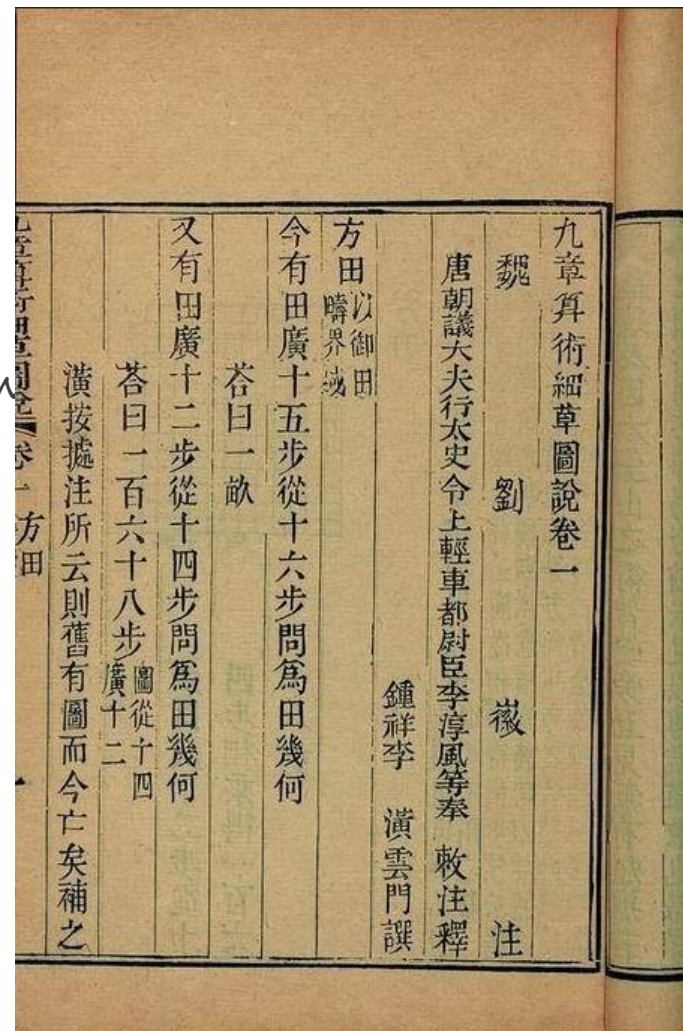 九章算術細草圖說卷一
魏 劉 徽 注
唐朝議大夫行太史令上輕車都尉臣李淳風等奉 敕注釋
鍾祥李 潢雲門譔
方田以御田疇界域
今有田廣十五步從十六步問爲田幾何
荅曰一畝
又有田廣十二步從十四步問爲田幾何
荅曰一百六十八步圖從十四廣十二
潢按據注所云則舊有圖而今亡矣補之
九章算術細草圖說 卷一 方田